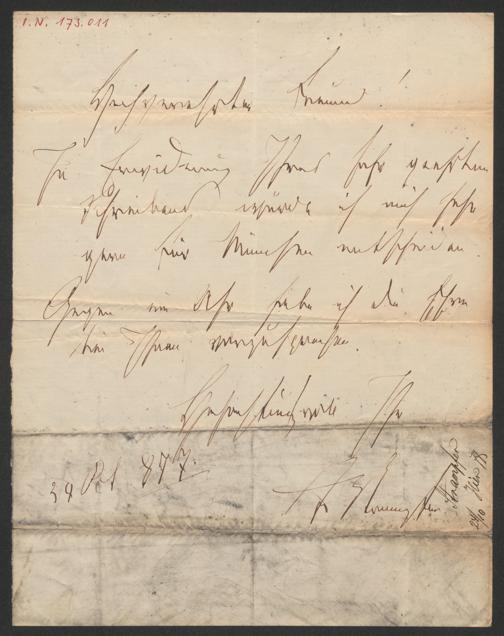 I.N. 173.011
Hochverehrter Freund!
In Erwiderung Ihres sehr geehrten
Schreibens würde ich mich sehr
gern für München entscheiden.
Gegen ein Uhr habe ich die Ehre
bei Ihnen vorzusprechen.
Hochachtungsvoll Ihr
24 Okt 877.
Strampfer
24/10